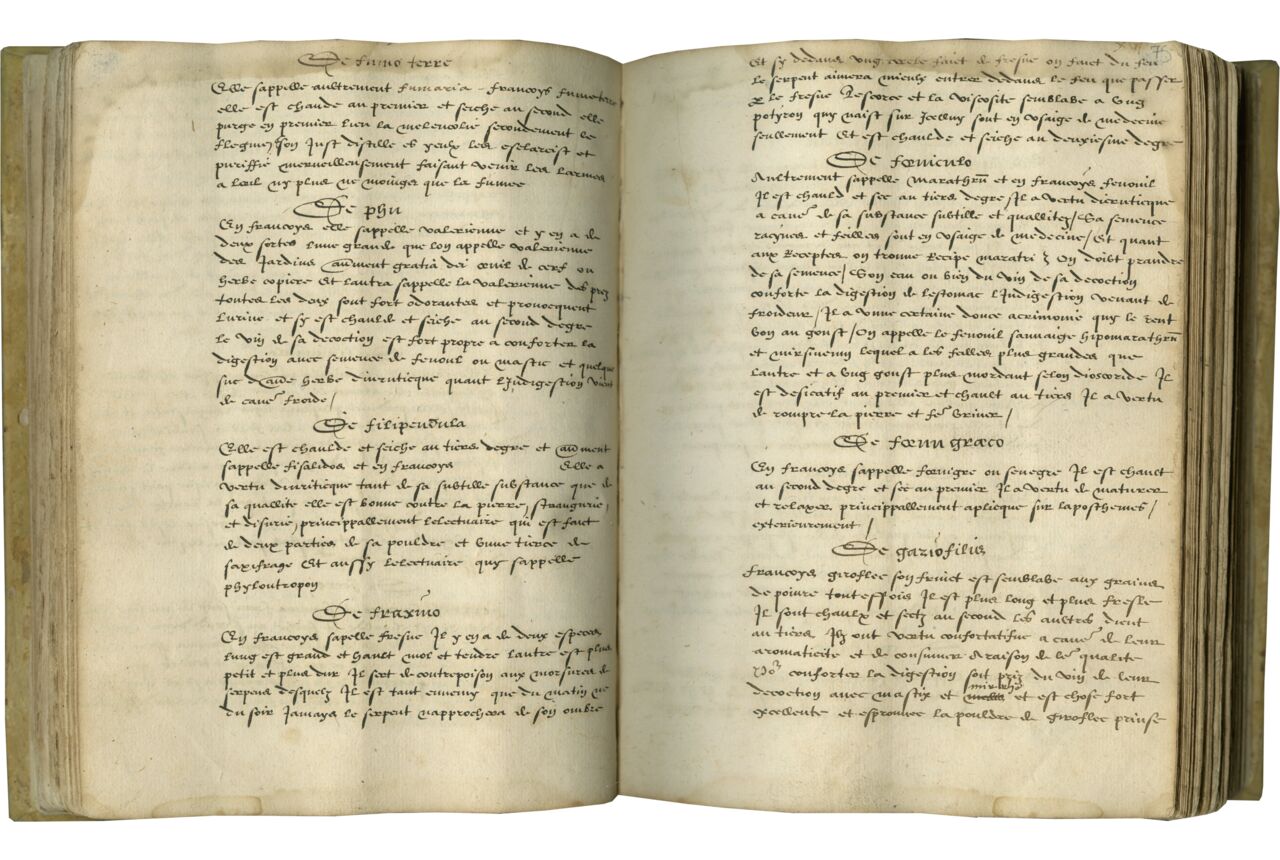 De fumo terre
Elle sappelle aultrement fumaria francoys fumeterre
elle est chaude au premier et seiche au second elle
purge en premier lieu la melencolie secondement le
flegme / son Just distille es yeulx les esclarcist et
puriffie merveilleusement faisant venir les larmes
a loeil ny plus ne moings que la fumee
De phu
En francoys elle sappelle valerienne et y en a de
deux sortes lune grande que lon appelle valerienne
des Jardins aultment gratia dei oeuil de cerf ou
herbe copiere Et lautra sappelle la valerienne des prez
toutes les deux sont fort odorantes et provocquent
lurine et sy est chaulde et seiche au second degre
le vin de sa decoction est fort propre a conforter la
digestion avec semence de fenoul ou mastic et quelque
suc daute herbe diureticque quant lIndigestion vient
de cause froide /
De filipendula
Elle est chaulde et seiche au tiers degre et aultment
sappelle fisalidos et en francoys Elle a
vertu diuriticque tant de sa subtille substance que de
sa quallite elle est bonne contre la pierre, strangurie,
et disurie, princippallement lelectuaire qui est faict
de deux parties de sa pouldre et dune tierce de
saxifrage Et aussy lelectuaire quy sappelle
phylontropon
De fraxino
En francoys sapelle fresne Il y en a de deux especes
lung est grand et hault mol et tendre lautre est plus
petit et plus dur Il sert de contrepoison aux morsures de
serpens desquelz Il est tant ennemy que du matin ne
du soir Jamays le serpent napprochera de son ombre
Et sy dedans ung cercle faict de fresne on faict du feu
le serpent aimera mieulx entrer dedans le feu que passer
le fresne Lescorce et la viscosite semblabe a ung
potyron quy naist sur Icelluy sont en usaige de medecine
seullement Et est chaulde et seiche au deuxiesme degre
De foeniculo
Aultrement sappelle marathrum et en francoys fenouil
Il est chauld et sec au tiers degre / Il a vertu diureticque
a cause de sa substance subtille et quallitez / Sa semence
racynes et feilles sont en usaige de medecine / Et quant
aux Receptes on trouve Recipe maratri on doibt prandre
de sa semence / Son eau ou bien du vin de sa decoction
conforte la digestion de lestomac lIndigestion venant de
froideur / Il a une certaine douce acrimonie quy le rent
bon au goust / On appelle le fenouil sauvaige hipomarathrum
et mirsineum lequel a les feilles plus grandes que
lautre et a ung goust plus mordant selon dioscoride Il
est desicatif au premier et chault au tiers Il a vertu
de rompre la pierre et fere uriner /
De foenu graeco
En francoys sappelle foenigre ou senegre Il est chault
au second degre et sec au premier Il a vertu de maturer
et relaxer princippallement aplicque sur laposthemes /
exterieurement /
De gariofilis
Francoys giroflee son fruict est semblabe aux grains
de poivre touteffois Il est plus long et plus fresle
Il sont chaulx et sectz au second les aultres dient
au tiers Ilz ont vertu confortatifve a cause de leur
aromaticite et de consumer a raison de ler qualite
Pour conforter la digestion soit priz du vin de leur
decoction avec mastix et et est chose fort
excellente et esprouvee la pouldre de giroflee prinse